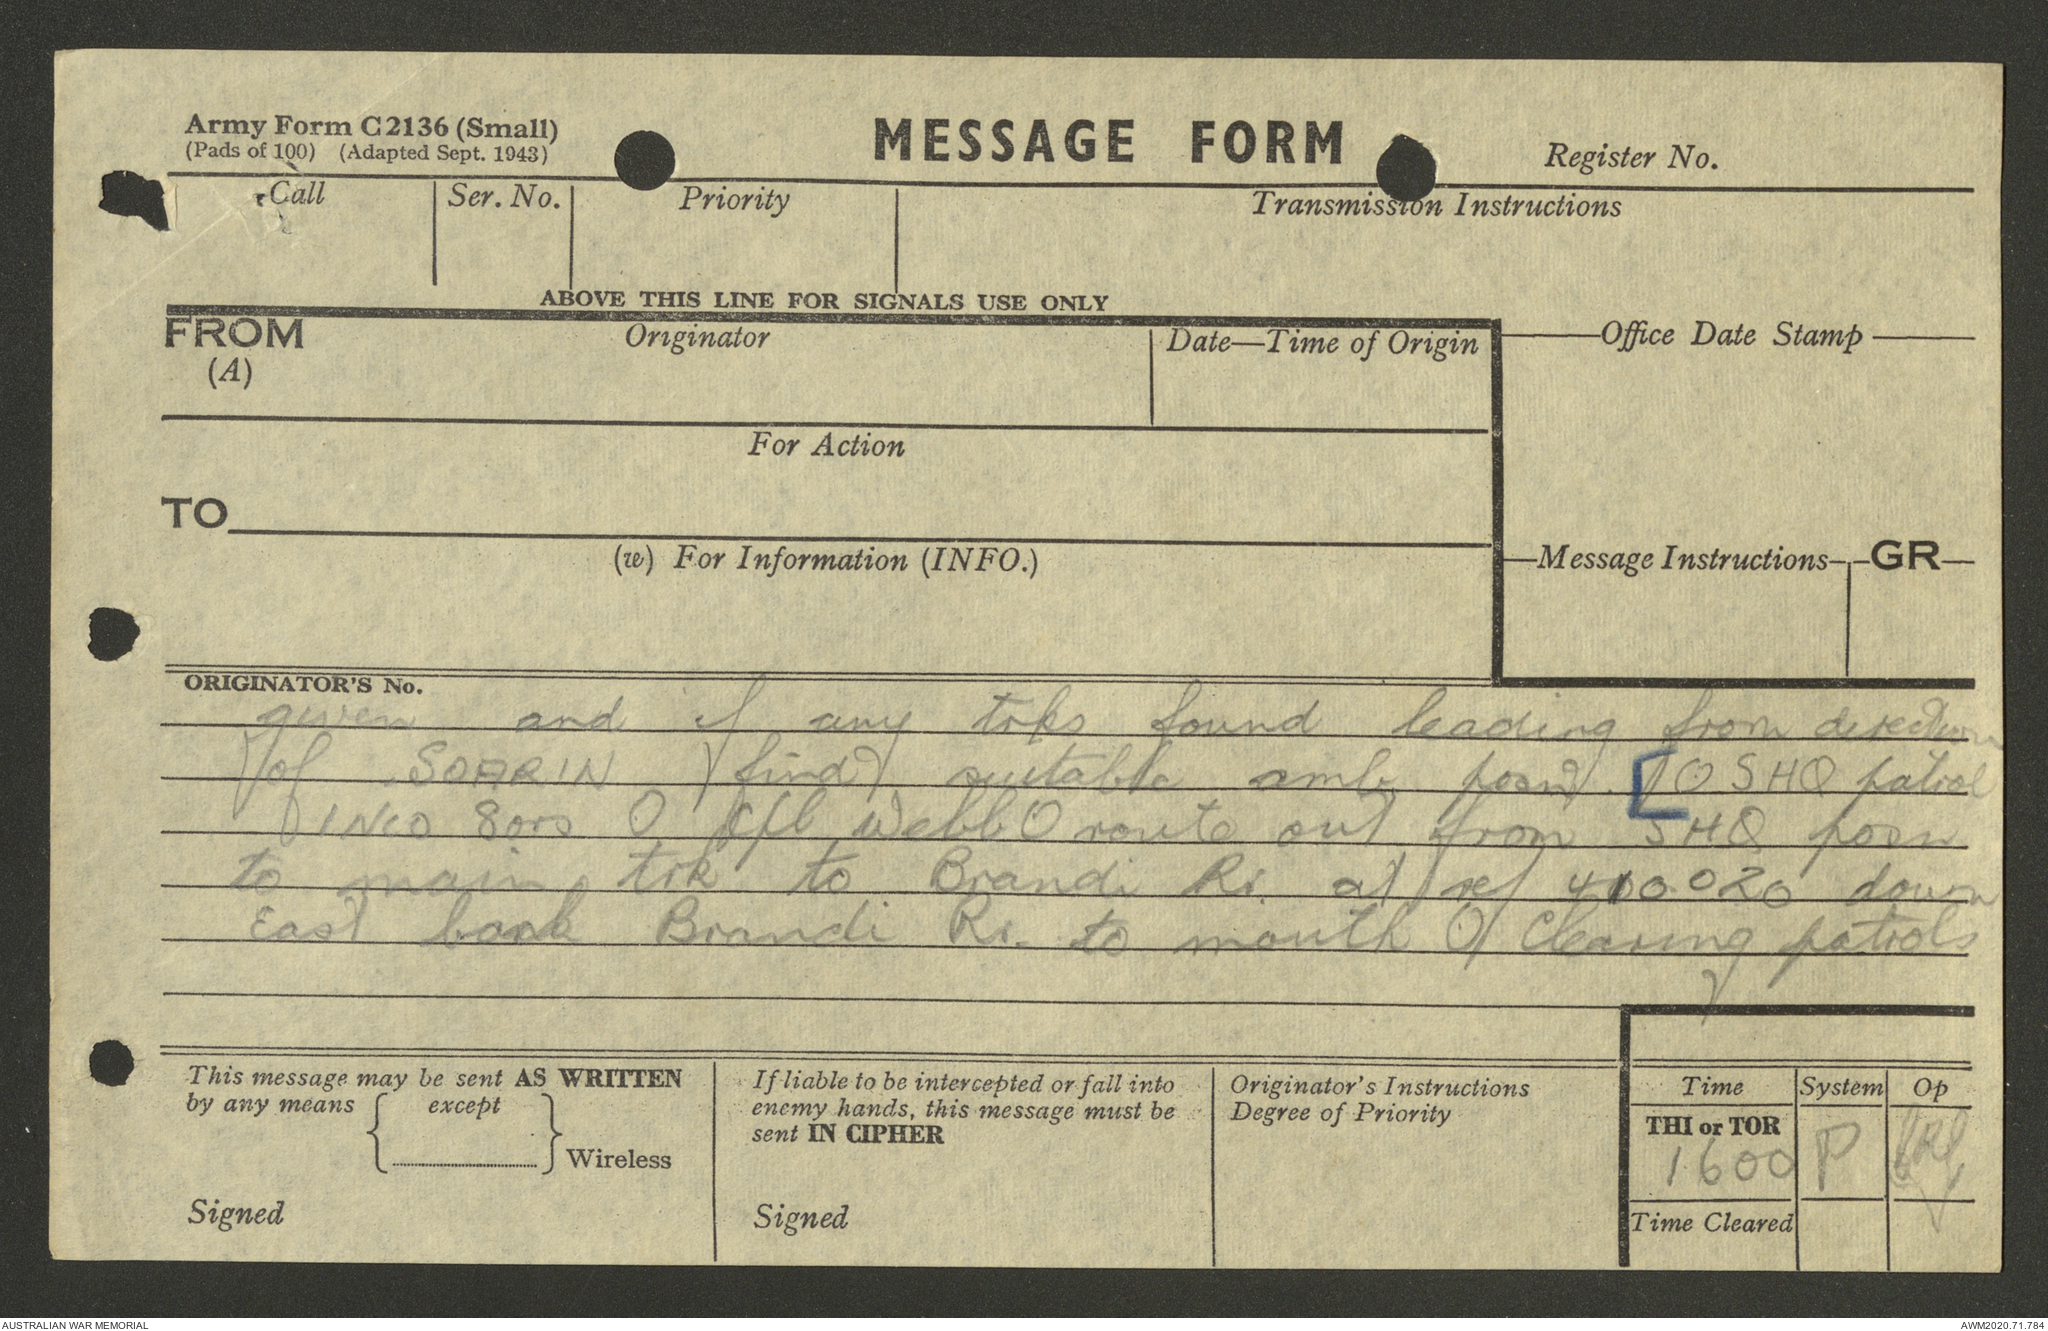 Army Form C2136 (Small)
(Pads of 100) (Adapted Sept. 1943)
MESSAGE FORM
Register No.
Call
Ser. No.
Priority
Transmission Instructions
ABOVE THIS LINE FOR SIGNALS USE ONLY
FROM
(A)
Originator
Date—Time of Origin
Office Date Stamp
For Action
TO
(w) For Information (INFO.)
Message Instructions
GR
ORIGINATOR'S No.
given and if any trks found leading from direction
of SOARIN find suitable amb posn. O SHQ patrol
1 NCO 8 ors O Cpl Webb O route out from SHQ posn
to main trk to Brandi Rr. at ref 410020 down
East bank Brandi Rr. to mouth O Clearing patrols
This message may be sent AS WRITTEN
by any means except
Wireless
Signed
If liable to be intercepted or fall into
enemy hands, this message must be
sent IN CIPHER
Signed
Originator's Instructions
Degree of Priority
Time
System
Op
THI or TOR
1600
P
Time Cleared
AUSTRALIAN WAR MEMORIAL
AWM2020.71.784